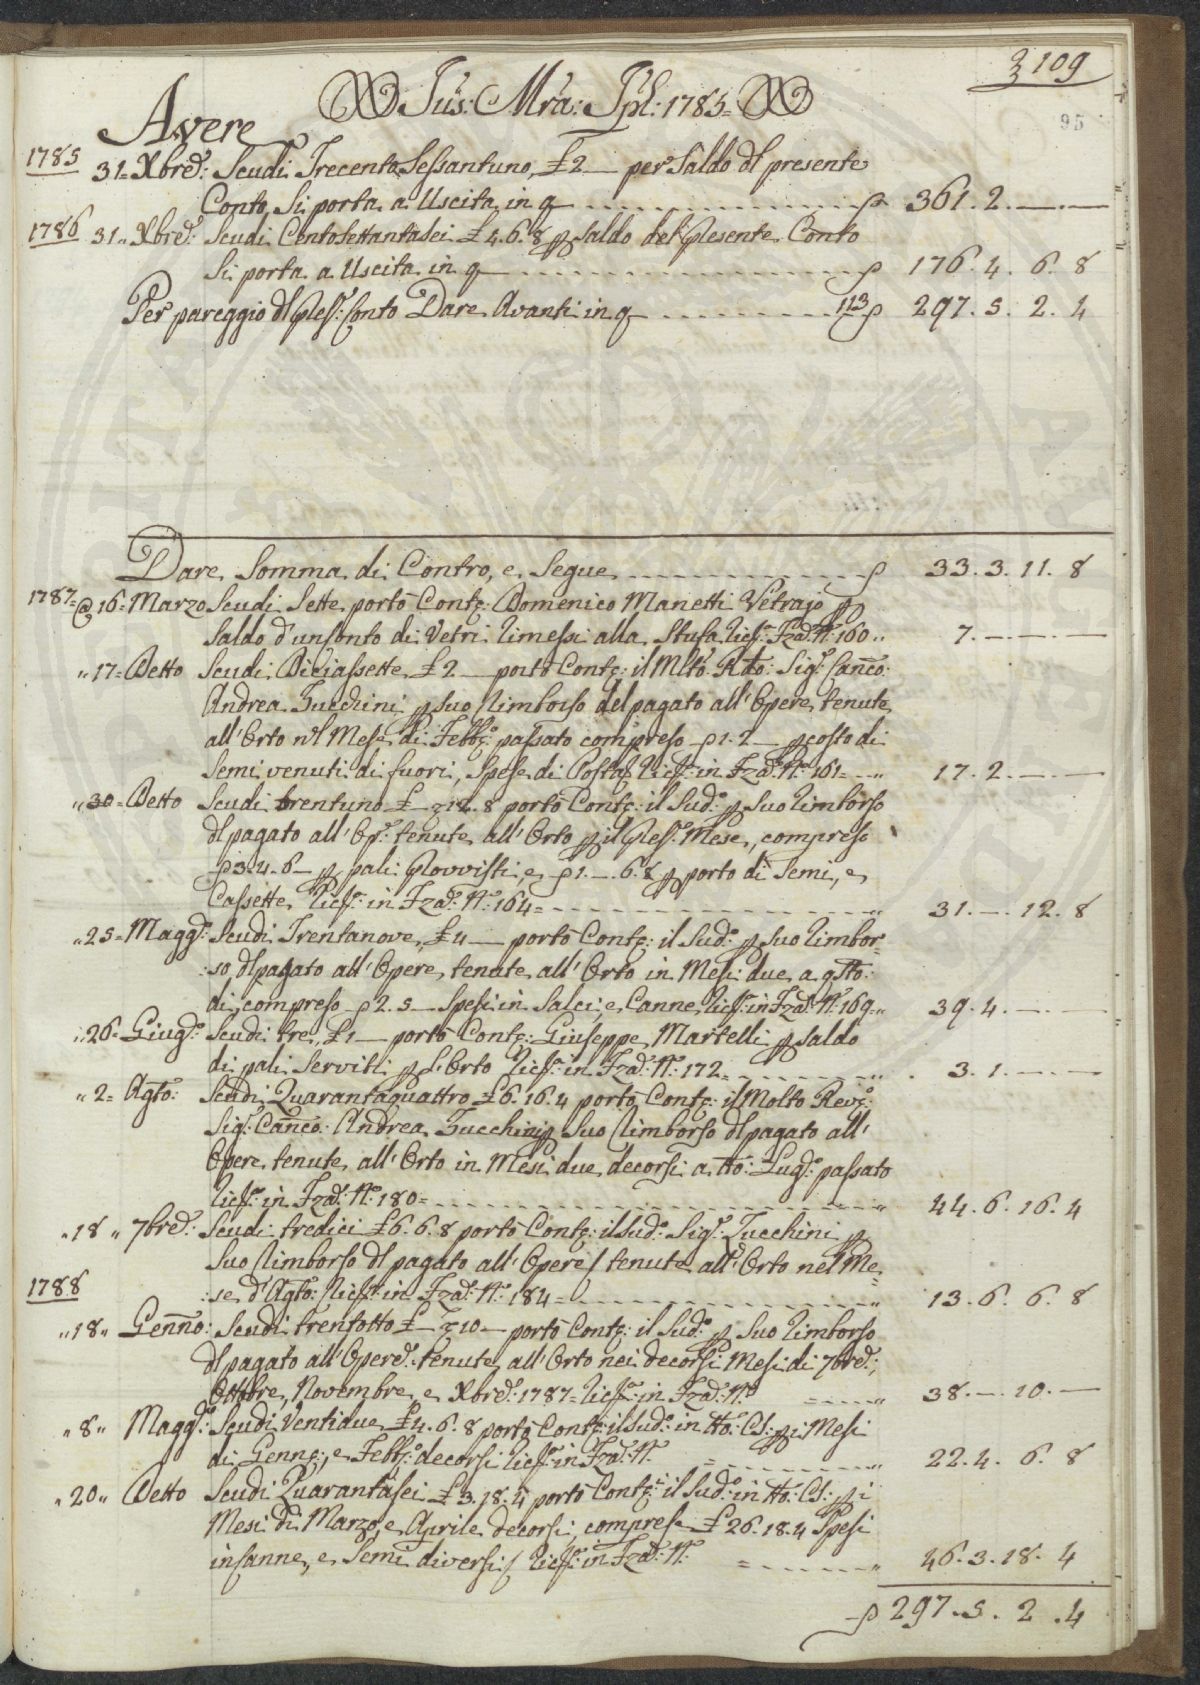 109
95
Jus: Mra: Spl: 1785=
Avere
1785 31= Xbre: Scudi Trecento Sessantuno, £ 2 — per Saldo dl presente
Conto, Si porta a Uscita in q 361. 2. — . —
1786 31„ Xbre: Scudi Centosettantasei £ 4. 6. 8 p Saldo del Presente Conto
Si porta a Uscita in q 176. 4. 6. 8
Per pareggio dl Pres: Conto Dare Avanti in q 113 297. 5. 2. 4
Dare Somma di Contro, e Segue 33. 3. 11. 8
1787= @ 16= Marzo Scudi Sette portò Conte: Domenico Manetti Vetrajo p
Saldo d'un Conto di Vetri rimessi alla Stufa Ricº: Fzaº: Nº: 160 „ 7. — . — . —
„ 17= Detto Scudi Diciassette £ 2 — portò Conte: il Mltº: Rdo: Sigr: Canco:
Andrea Zucchini p suo Rimborso del pagato all'Opere tenute
all'Orto nl Mese di Febbº: passato compreso 1. 2 — p costo di
Semi venuti di fuori, Spese di Posta Ricº: in Fzaº: Nº: 161= 17. 2. — . —
„ 30= Detto Scudi trentuno £ — 12. 8 portò Conte: il Sudº: p suo Rimborso
dl pagato all'Opº: tenute all'Orto p il Presº: Mese, compreso
3. 4. 6 — p pali Provvisti, e 1. — . 6. 8 p porto di Semi, e
Cassette Ricº: in Fzaº: Nº: 164= 31. — . 12. 8
„ 25= Maggº: Scudi Trentanove, £ 4 — portò Conte: il Sudº: p suo Rimbor=
:so dl pagato all'Opere tenute all'Orto in Mesi due a qsto:
di, compreso 2. 5 — Spesi in Salci, e Canne Ricº: in Fzaº: Nº: 169= 39. 4. — . —
„ 26= Giugº: Scudi tre, £ 1 — portò Conte: Giuseppe Martelli p saldo
di pali serviti p l'Orto Ricº: in Fzaº: Nº: 172= 3. 1. — . —
„ 2= Agto: Scudi Quarantaquattro £ 6. 16. 4 portò Conte: il Molto Revº:
Sigr: Canco: Andrea Zucchini p Suo Rimborso dl pagato all'
Opere tenute all'Orto in Mesi due decorsi a tto: Lugº: passato
Ricº: in Fzaº: Nº: 180= 44. 6. 16. 4
„ 18 „ 7bre: Scudi tredici £ 6. 6. 8 portò Conte: il Sudº: Sigr: Zucchini p
Suo Rimborso dl pagato all'Opere tenute all'Orto nel Me=
1788 :se d'Agto: Ricº: in Fzaº: Nº: 184= 13. 6. 6. 8
„ 18 „ Genno: Scudi trentotto £ — 10 — portò Conte: il Sudº: p Suo Rimborso
dl pagato all'Opere: tenute all'Orto nei decorsi Mesi di 7bre:,
Ottobre, Novembre, e Xbre: 1787= Ricº: in Fzaº: Nº: 38. — . 10. —
„ 8 „ Maggº: Scudi Ventidue £ 4. 6. 8 portò Conte: il Sudº: in tto: Cs: p i Mesi
di Genno:, e Febbº: decorsi Ricº: in Fzaº: Nº: 22. 4. 6. 8
„ 20 „ Detto Scudi Quarantasei £ 3. 18. 4 portò Conte: il Sudº: in tto: Cs: p i
Mesi di Marzo, e Aprile decorsi, compreso £ 26. 18. 4 Spesi
in Canne, e Semi diversi Ricº: in Fzaº: Nº: 46. 3. 18. 4
297. 5. 2. 4